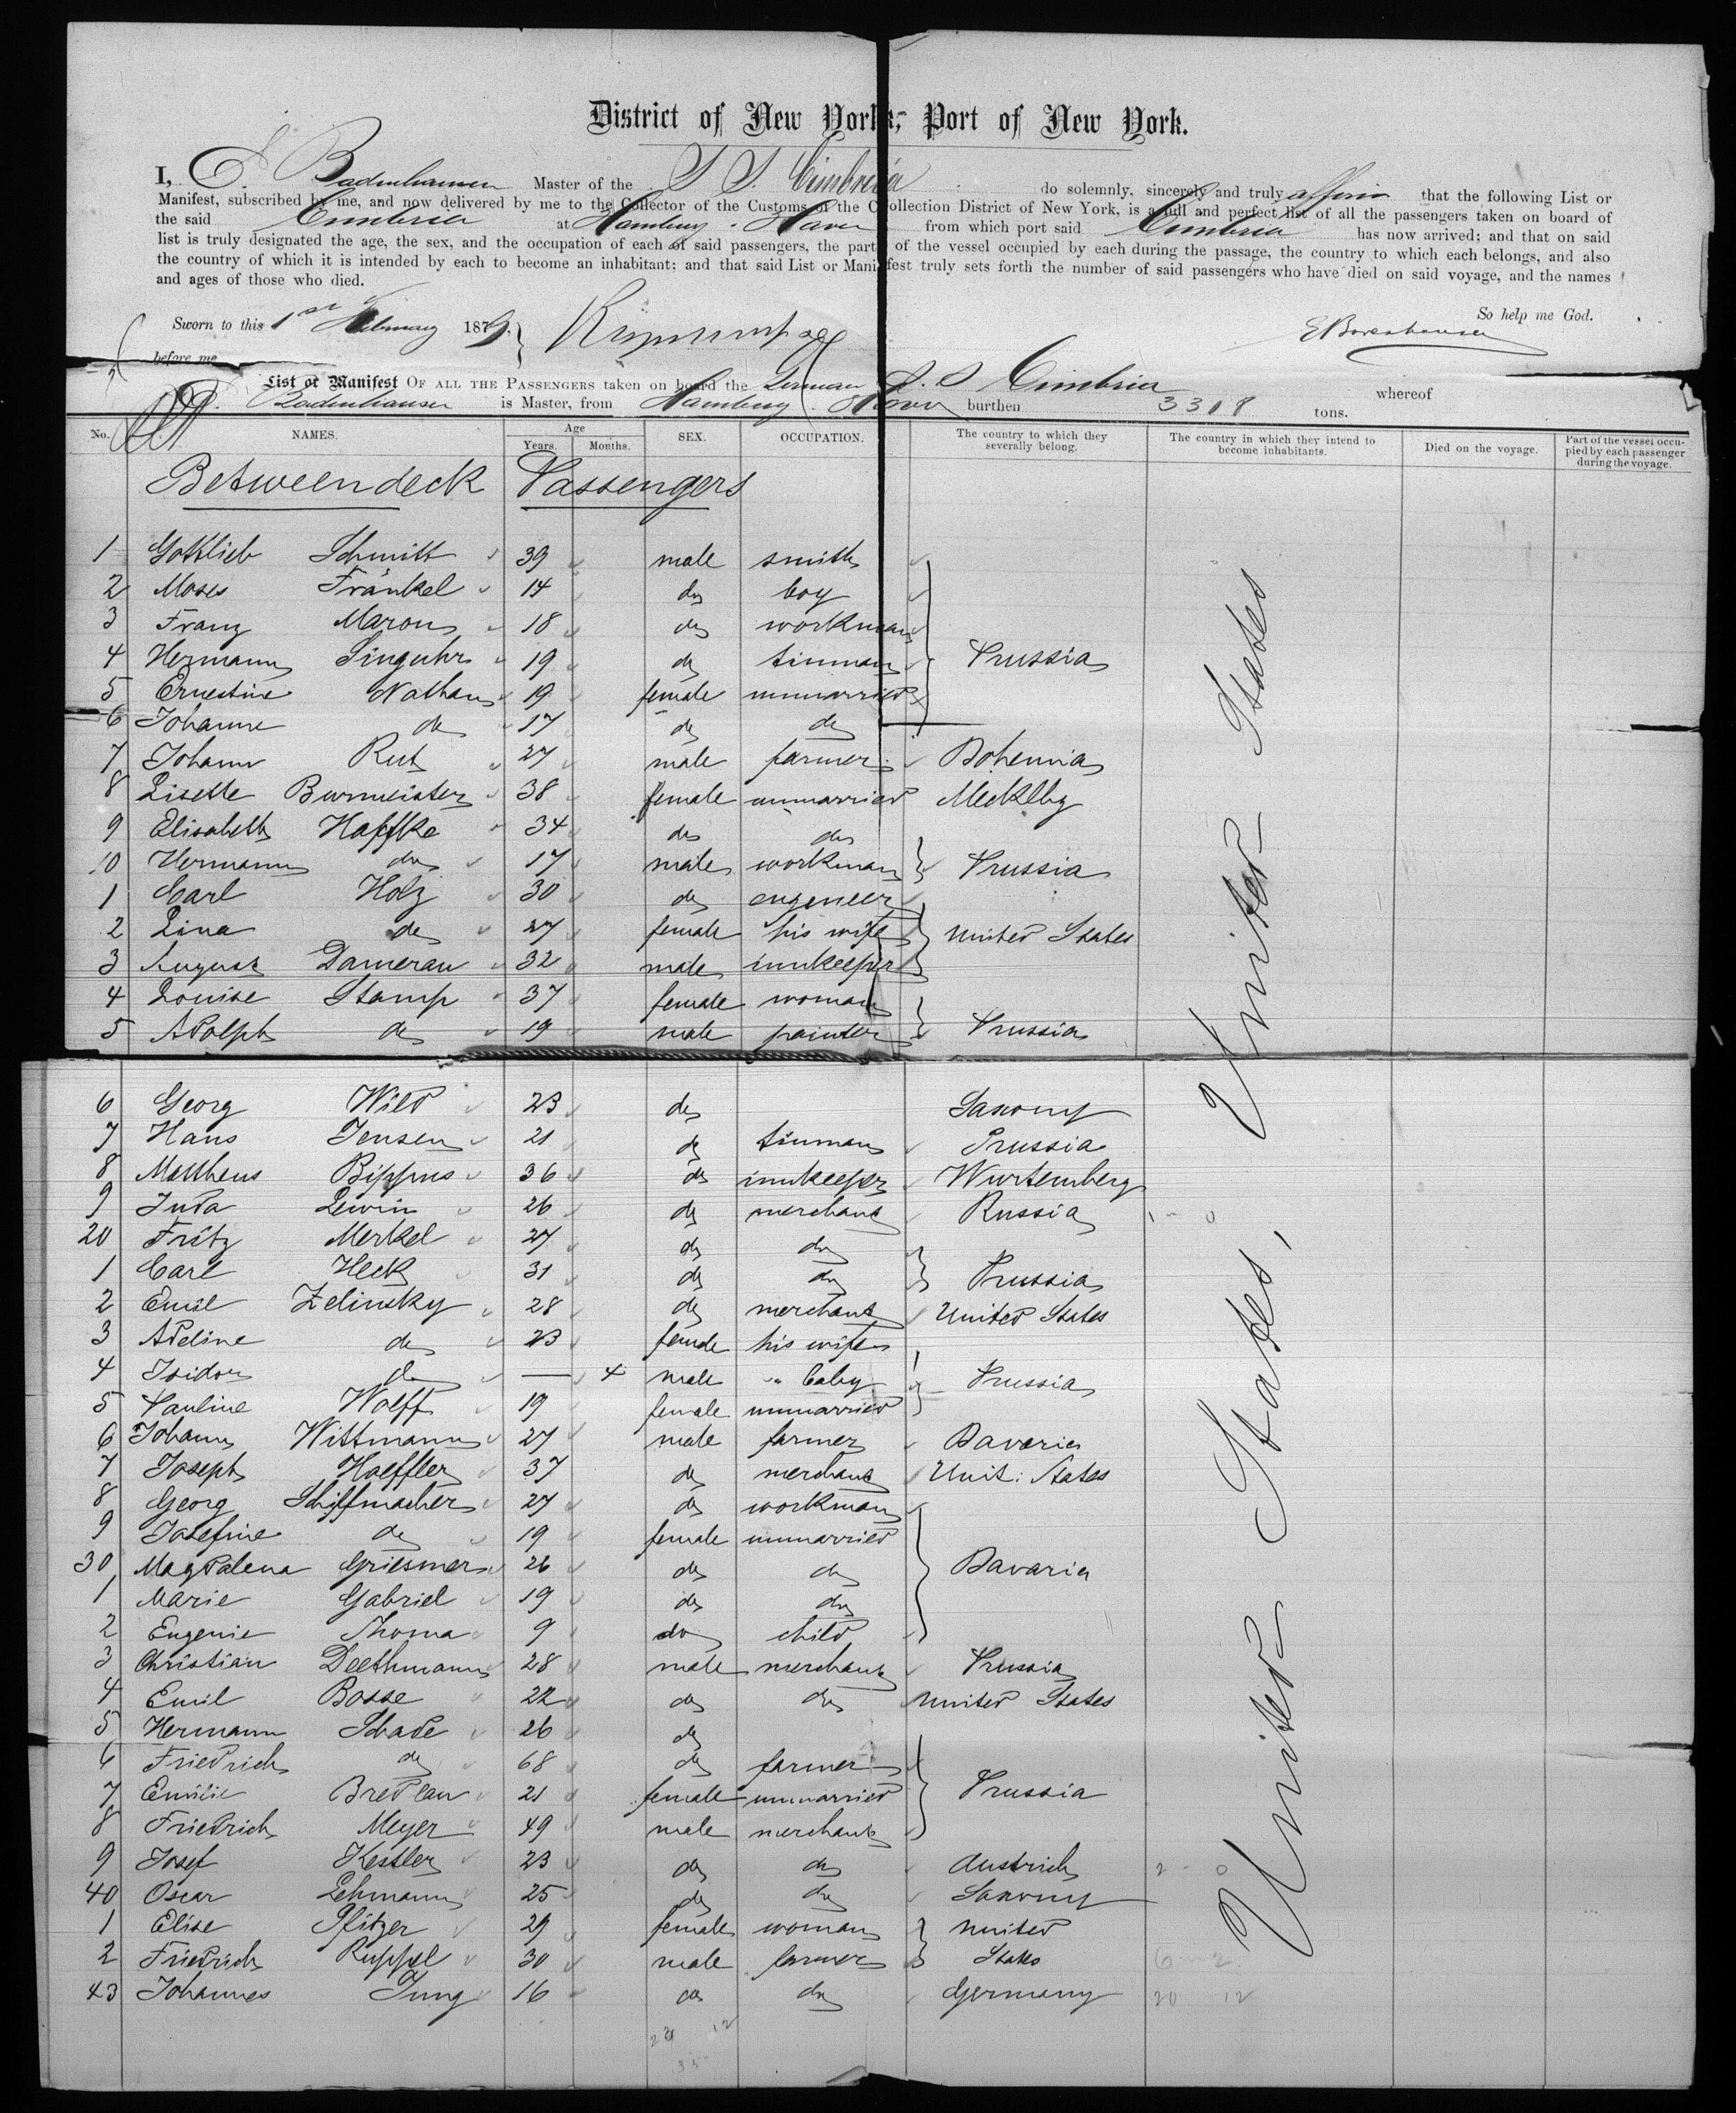 District of New York, Port of New York.
I, E. Badenhausen Master of the S. S. Cimbria do solemnly, sincerely and truly affirm that the following List or
Manifest, subscribed by me, and now delivered by me to the Collector of the Customs of the Collection District of New York, is a full and perfect list of all the passengers taken on board of
the said Cimbria at Hamburg - Havre from which port said Cimbria has now arrived; and that on said
list is truly designated the age, the sex, and the occupation of each of said passengers, the part of the vessel occupied by each during the passage, the country to which each belongs, and also
the country of which it is intended by each to become an inhabitant; and that said List or Manifest truly sets forth the number of said passengers who have died on said voyage, and the names
and ages of those who died.
So help me God.
Sworn to this 1st February 1879.
E Badenhausen
before me
List or Manifest OF ALL THE PASSENGERS taken on board the German S. S Cimbria whereof
Badenhausen is Master, from Hamburg Havre burthen 3308 tons.
No. NAMES. Age Years. Months. SEX. OCCUPATION. The country to which they severally belong. The country in which they intend to become inhabitants. Died on the voyage. Part of the vessel occupied by each passenger during the voyage.
Betweendeck Passengers
1 Gottlieb Schmitt 39 male smith
2 Moses Fränkel 14 do boy
3 Franz Maron 18 do workman
4 Hermann Singuhr 19 do tinman Prussia
5 Ernestine Nathan 19 female unmarried
6 Johanne do 17 do do
7 Johann Rut 27 male farmer Bohemia
8 Lisette Burmeister 38 female unmarried Mecklbg
9 Elisabeth Haffke 34 do do
10 Hermann do 17 male workman Prussia
1 Carl Holz 30 do engeneer
2 Lina do 27 female his wife United States
3 August Damerau 32 male innkeeper
4 Louise Stamp 37 female woman
5 Adolph do 19 male painter Prussia
6 Georg Wild 23 do Saxony
7 Hans Jensen 21 do tinman Prussia
8 Mattheus Bippus 36 do innkeeper Wurtemberg
9 Juda Lewin 26 do merchant Russia 1 - 0
20 Fritz Merkel 27 do do
1 Carl Heck 31 do do Prussia
2 Emil Zelinsky 28 do merchant United States
3 Adeline do 23 female his wife
4 Isidor do — 4 male " baby Prussia
5 Pauline Wolff 19 female unmarried
6 Johann Wittmann 27 male farmer Bavaria
7 Joseph Hoeffler 37 do merchant Unit: States
8 Georg Schiffmacher 27 do workman
9 Josefine do 19 female unmarried
30 Magdalena Griesmer 26 do do Bavaria
1 Marie Gabriel 19 do do
2 Eugenie Thoma 9 do child
3 Christian Deethmann 28 male merchant Prussia
4 Emil Bosse 22 do do United States
5 Hermann Schade 26 do
6 Friedrich do 68 do farmer
7 Emilie Bredlau 21 female unmarried Prussia
8 Friedrich Meyer 49 male merchant
9 Josef Kestler 23 do do Austrich 2 - 0
40 Oscar Lehmann 25 do do Saxony
1 Elise Pfitzer 29 female woman United
2 Friedrich Ruppel 30 male farmer States 6 - 2
43 Johannes Jung 16 do do Germany 20 12
United States
United States,
12
35